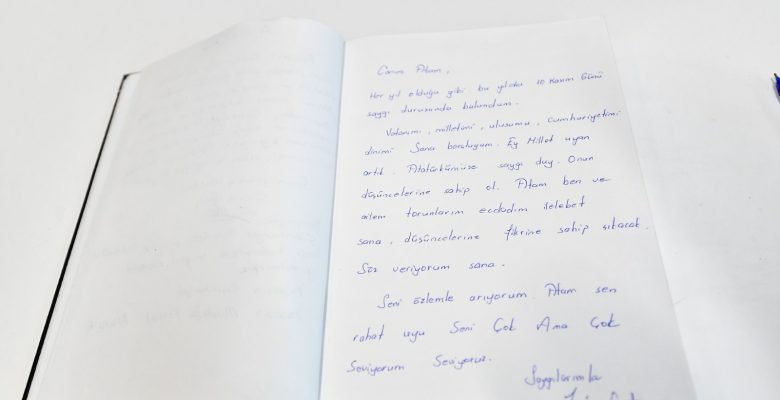 Canım Atam,
Her yıl olduğu gibi bu yılda 10 Kasım Günü
saygı duruşunda bulundum.
Vatanımı, milletimi, ulusumu, cumhuriyetimi
dinimi Sana borçluyum. Ey Millet uyan
artık. Atatürkümüze saygı duy. Onun
düşüncelerine sahip ol. Atam ben ve
ailem torunlarım ecdadım ilelebet
sana, düşüncelerine fikrine sahip çıkacak.
Söz veriyorum sana.
Seni özlemle arıyorum. Atam sen
rahat uyu Seni Çok Ama Çok
Seviyorum Seviyoruz.
Saygılarımla